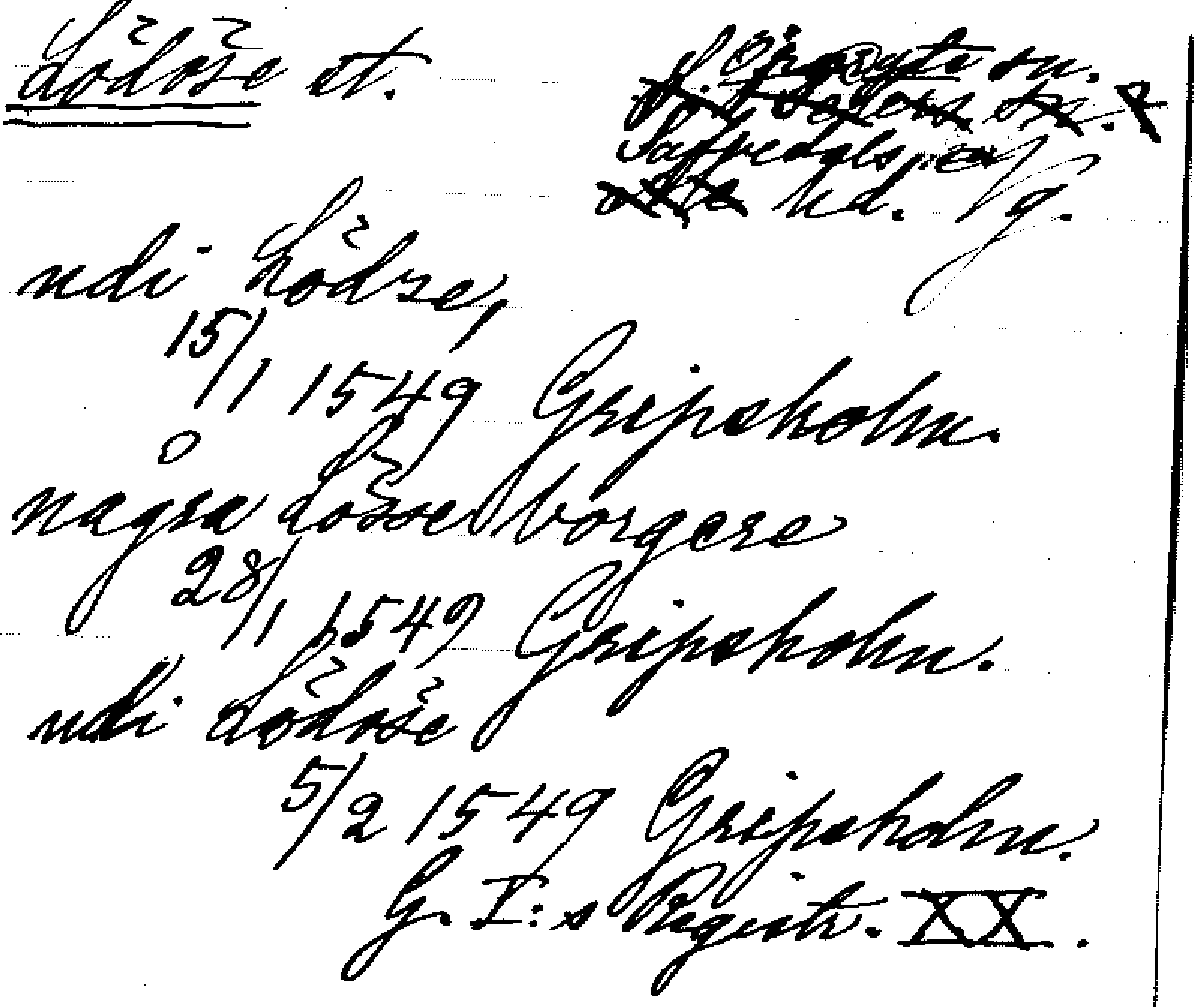 Lödöse st.
Örgryte sn.
Säfvedals
hd. Vg.
udi Lödze,
15/1 1549 Gripsholm.
någre Lösse borgere
28/1 1549 Gripsholm.
udi Lödöse
5/2 1549 Gripsholm.
G. I:s Registr. XX.